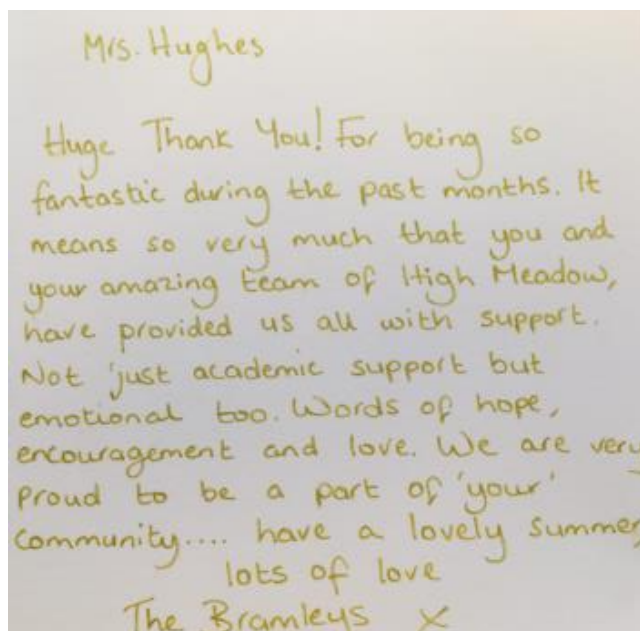 Mrs. Hughes
Huge Thank You! For being so
fantastic during the past months. It
means so very much that you and
your amazing team of High Meadow,
have provided us all with support.
Not just academic support but
emotional too. Words of hope,
encouragement and love. We are very
proud to be a part of 'your'
community.... have a lovely summer,
lots of love
The Bramleys x